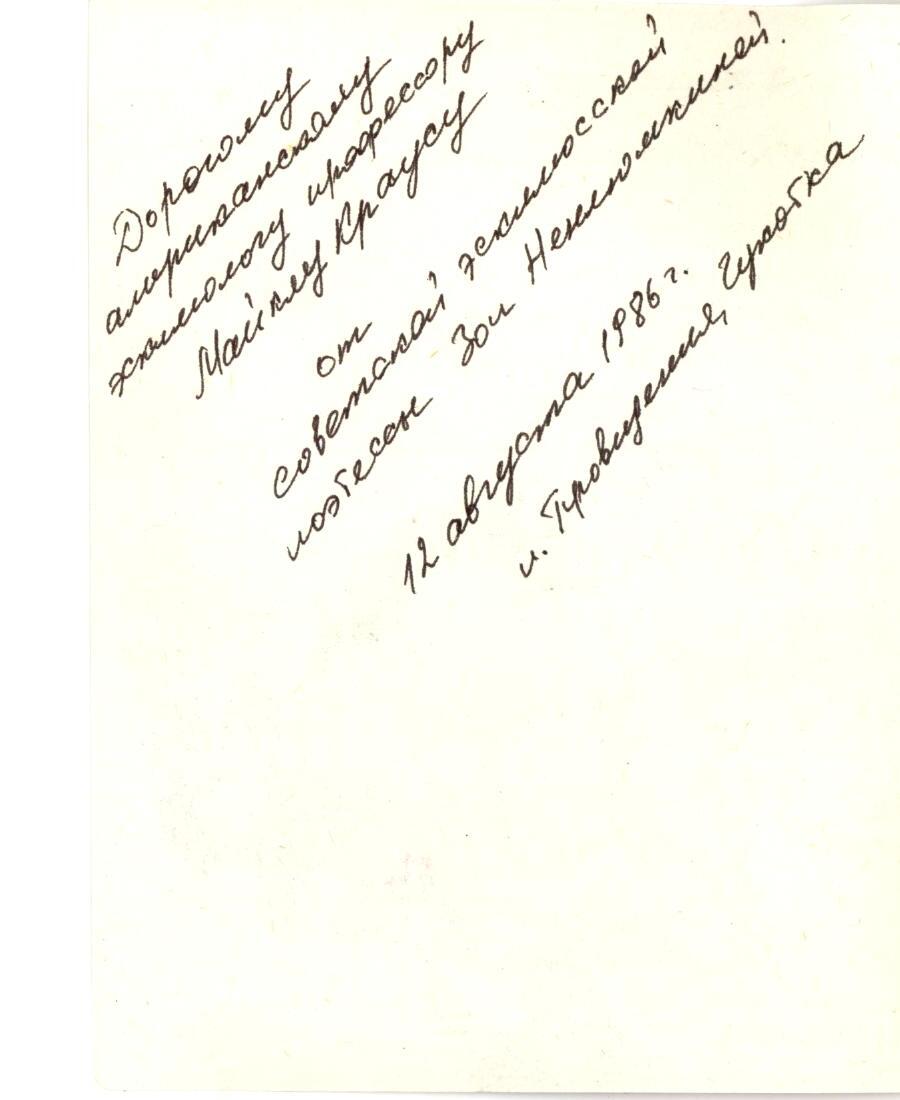 Дорогому
американскому
эскимологу профессору
Майклу Краусу
от
советской эскимосской
поэтессы Зои Ненлюмкиной.
12 августа 1986 г.
п. Провидения, Чукотка